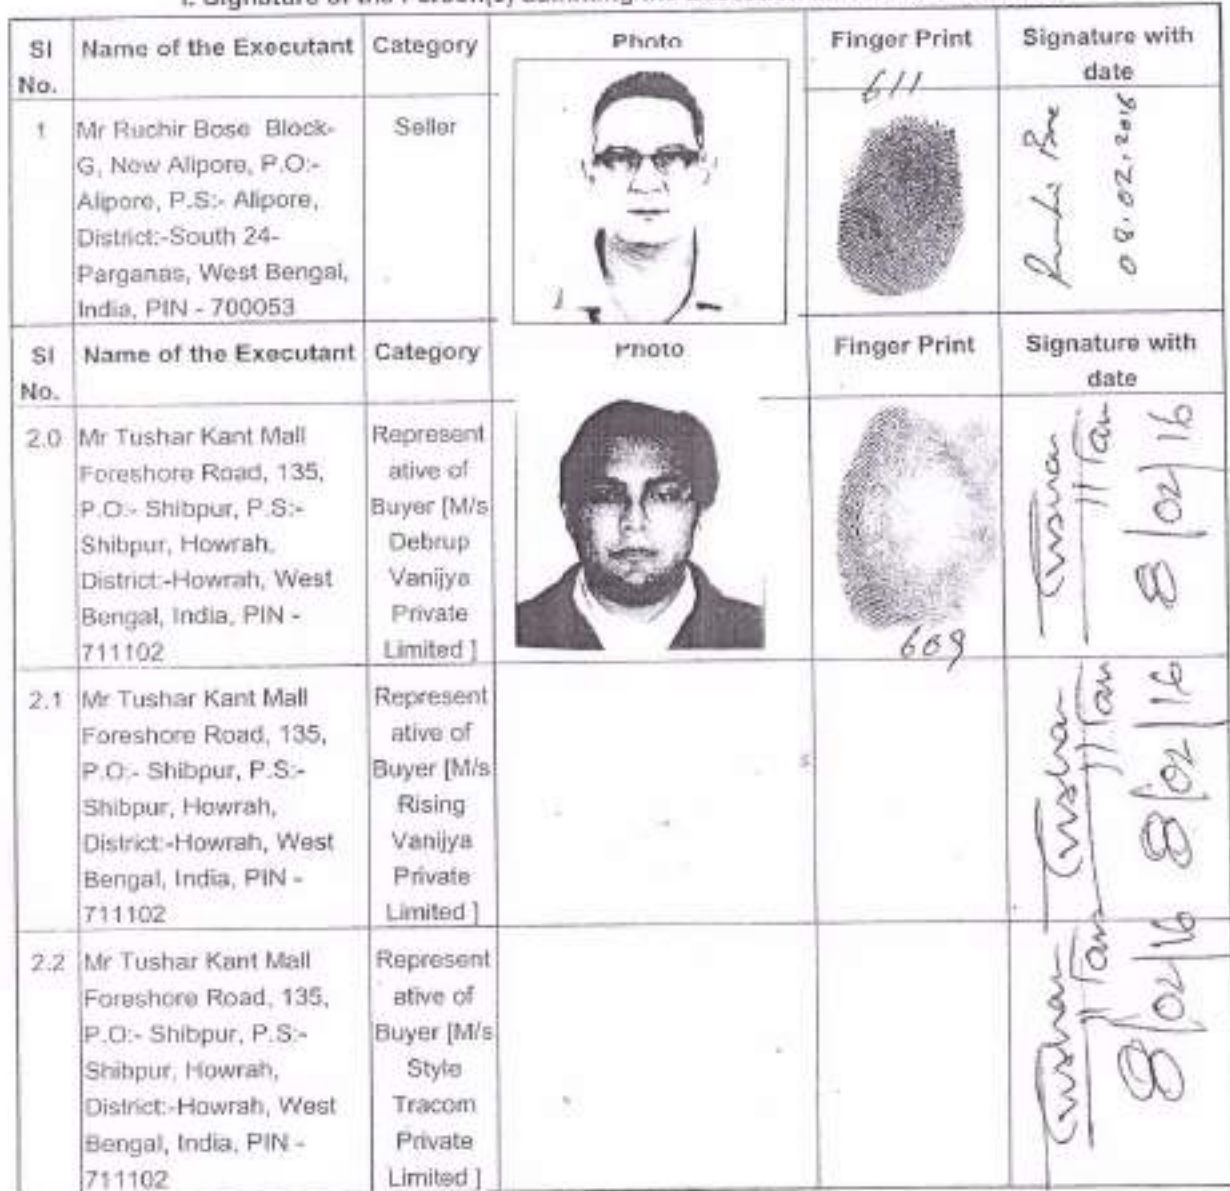 I. Signature of the Person(s) admitting the
Sl No. Name of the Executant Category Photo Finger Print Signature with date
611
1 Mr Ruchir Bose Block-
G, New Alipore, P.O:-
Alipore, P.S:- Alipore,
District:-South 24-
Parganas, West Bengal,
India, PIN - 700053
Seller
08.02.2016
Sl No. Name of the Executant Category Photo Finger Print Signature with date
2.0 Mr Tushar Kant Mall
Foreshore Road, 135,
P.O:- Shibpur, P.S:-
Shibpur, Howrah,
District:-Howrah, West
Bengal, India, PIN -
711102
Represent
ative of
Buyer [M/s
Debrup
Vanijya
Private
Limited ]
609
Tushar
8/02/16
2.1 Mr Tushar Kant Mall
Foreshore Road, 135,
P.O:- Shibpur, P.S:-
Shibpur, Howrah,
District:-Howrah, West
Bengal, India, PIN -
711102
Represent
ative of
Buyer [M/s
Rising
Vanijya
Private
Limited ]
Tushar
8/02/16
2.2 Mr Tushar Kant Mall
Foreshore Road, 135,
P.O:- Shibpur, P.S:-
Shibpur, Howrah,
District:-Howrah, West
Bengal, India, PIN -
711102
Represent
ative of
Buyer [M/s
Style
Tracom
Private
Limited ]
Tushar
8/02/16